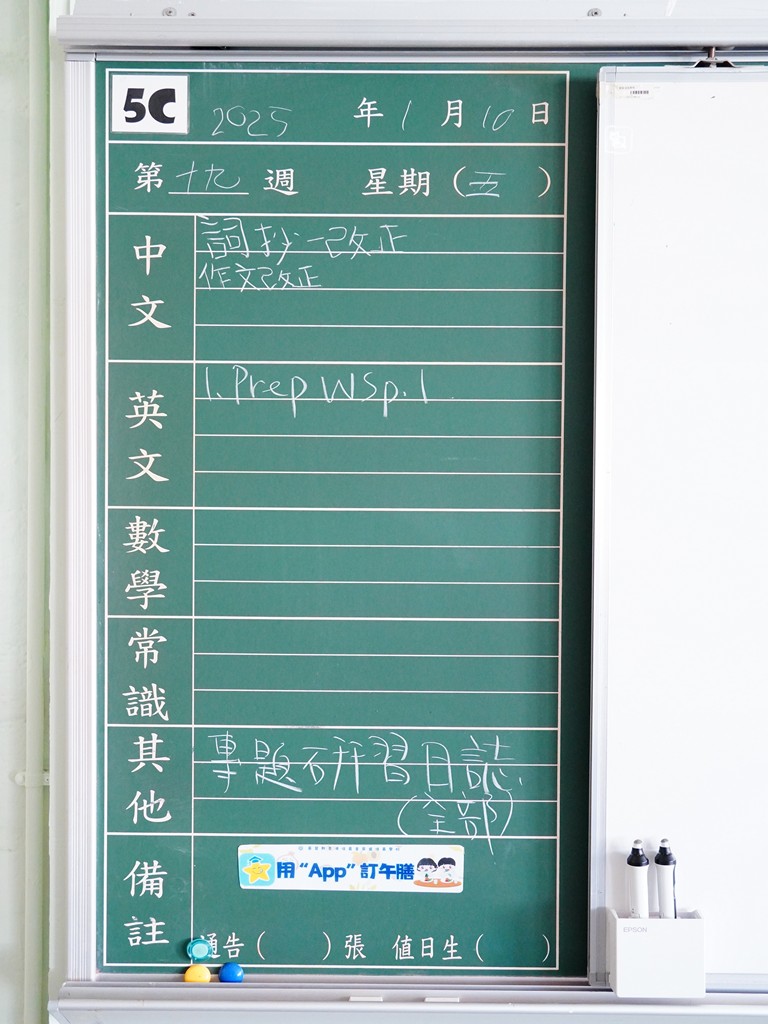 5C 2025 年 1 月 10 日
第 十九 週 星期 (五)
中文
詞抄一改正
作文改正
英文
1. Prep WS p.1
數學
常識
其他
專題研習日誌
(全部)
備註
用“App”訂午膳
通告 ( ) 張 值日生 ( )
EPSON